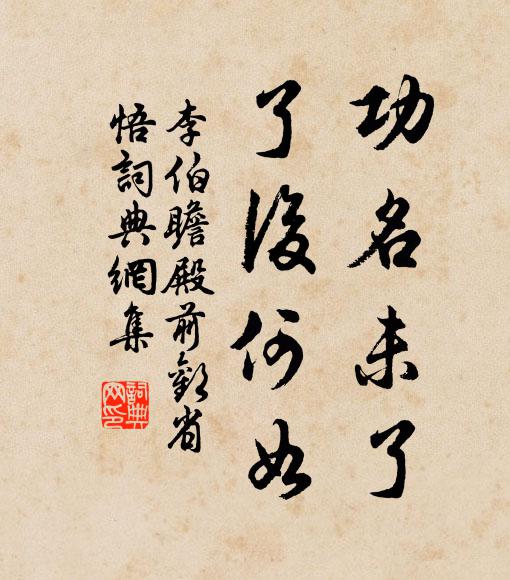 功名未了
了後何如
李伯瞻殿前歡省
悟詞典網集
詞典网印